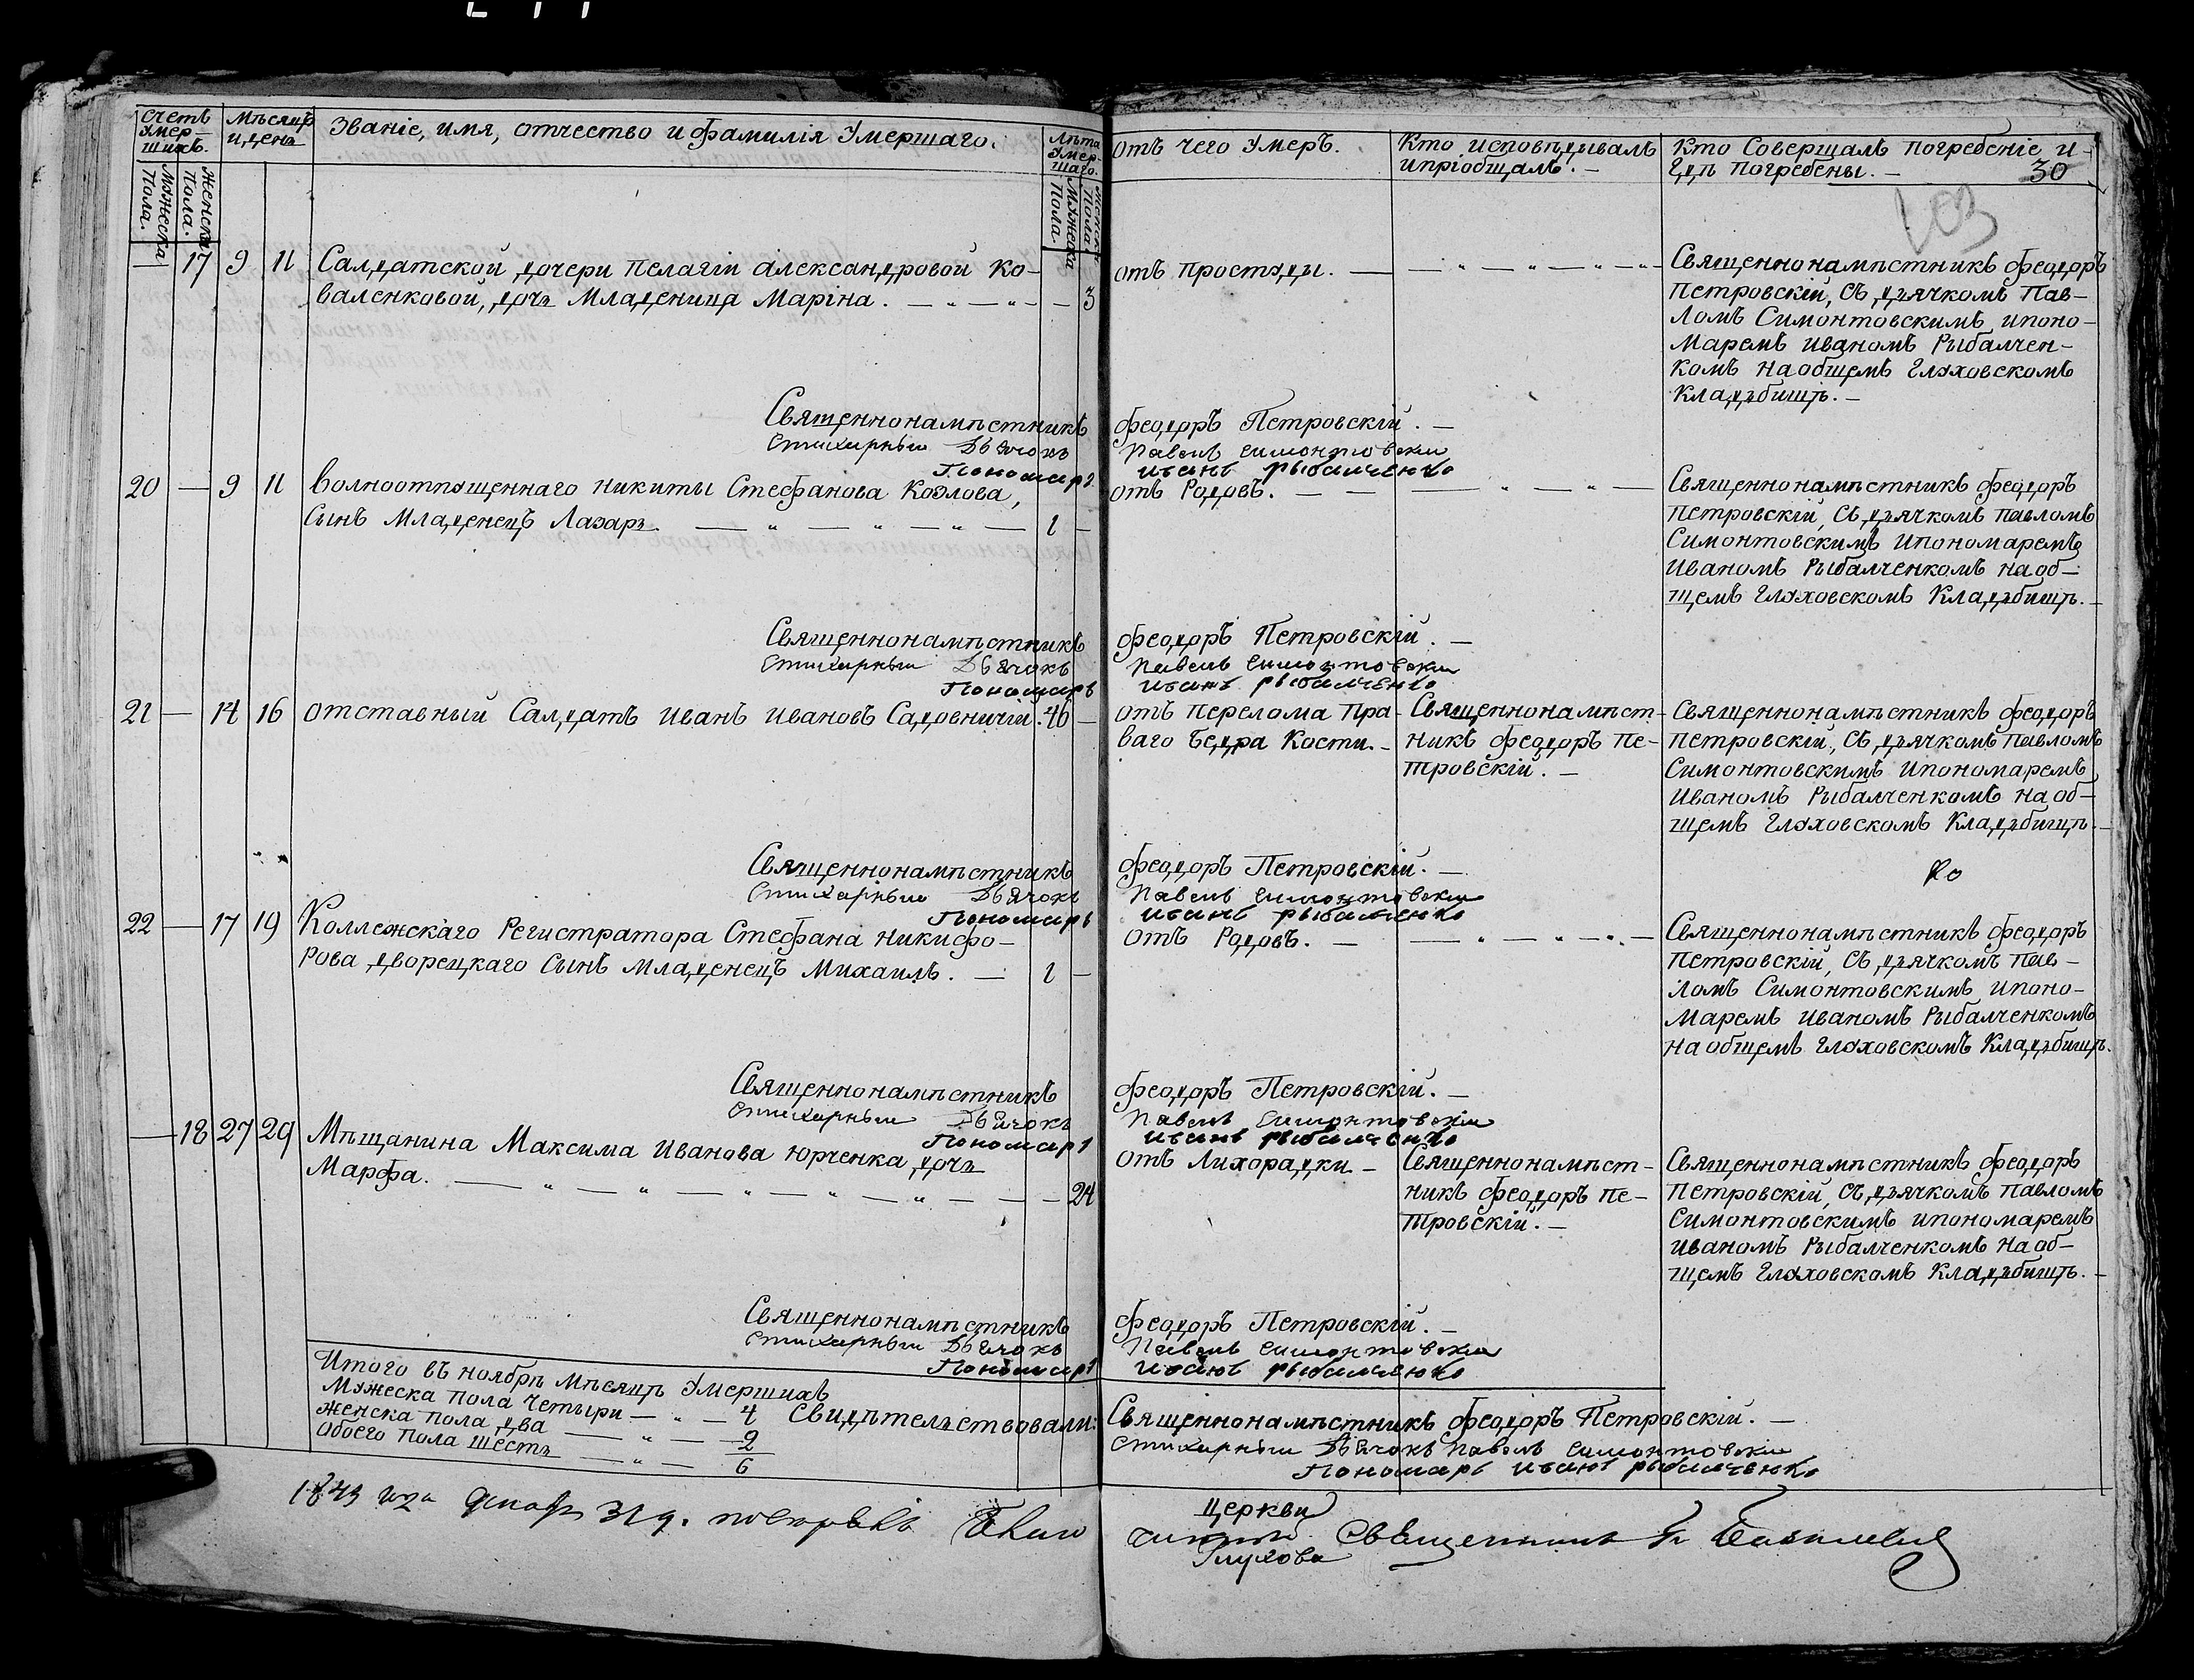 Счетъ умер-шихъ.
Мѣсяцъ и день
Званіе, имя, отчество и фамилія умершаго.
Лѣта умер-шаго.
отъ чего умеръ.
Кто исповѣдывалъ
ипріобщалъ. —
Кто Совершалъ погребеніе и
гдѣ погребены. —
30
Мужеска Пола.
Женска Пола.
Мужеска Пола.
Женска Пола
103
— 17 9 11 Салдатской дочери Пелагіи Александровой Ко-
валенковой, дочь Младеница Маріна. — „ — „ — — 3
отъ простуды. —
— „ — „ — „ —
Священнонамѣстникъ Феодоръ
Петровскій, Съ дьячкомъ Пав-
ломъ Симонтовскимъ ипоно-
маремъ Иваномъ Рыбалчен-
комъ на общемъ Глуховскомъ
Кладьбищѣ. —
Священнонамѣстникъ Феодоръ Петровскій. —
Стихарный Дьячокъ Павелъ Симонтовски
Пономарь Иванъ Рыбалченко
20 — 9 11 Волноотпущеннаго Никиты Стефанова Козлова,
Сынъ Младенецъ Лазарь. — „ — „ — „ — 1 —
отъ Родовъ. — —
— „ — „ —
Священнонамѣстникъ Феодоръ
Петровскій, Съ дьячкомъ Павломъ
Симонтовскимъ Ипономаремъ
Иваномъ Рыбалченкомъ на об-
щемъ Глуховскомъ Кладьбищѣ. —
Священнонамѣстникъ Феодоръ Петровскій. —
Стихарный Дьячокъ Павелъ Симонтовски
Пономарь Иванъ Рыбалченко
21 — 14 16 отставный Салдатъ Иванъ Ивановъ Садовничій. 46 —
отъ перелома Пра-
ваго Бедра Кости. —
Священнонамѣст-
никъ Феодоръ Пе-
тровскій. —
Священнонамѣстникъ Феодоръ
Петровскій, Съ дьячкомъ Павломъ
Симонтовскимъ Ипономаремъ
Иваномъ Рыбалченкомъ на об-
щемъ Глуховскомъ Кладьбищѣ. —
Священнонамѣстникъ Феодоръ Петровскій. —
Стихарный Дьячокъ Павелъ Симонтовски
Пономарь Иванъ Рыбалченко
22 — 17 19 Коллежскаго Регистратора Стефана Никифо-
рова Дворецкаго Сынъ Младенецъ Михаилъ. — 1 —
отъ Родовъ. —
— „ — „ — „ —
Священнонамѣстникъ Феодоръ
Петровскій, Съ дьячкомъ Пав-
ломъ Симонтовскимъ ипоно-
маремъ Иваномъ Рыбалченкомъ
на общемъ Глуховскомъ Кладьбищѣ.
Священнонамѣстникъ Феодоръ Петровскій. —
Стихарный Дьячокъ Павелъ Симонтовски
Пономарь Иванъ Рыбалченко
— 18 27 29 Мѣщанина Максима Иванова Юрченка дочь
Марфа. — „ — „ — „ — „ — „ — — — 24
отъ Лихорадки —
Священнонамѣст-
никъ Феодоръ Пе-
тровскій. —
Священнонамѣстникъ Феодоръ
Петровскій, Съ дьячкомъ Павломъ
Симонтовскимъ ипономаремъ
Иваномъ Рыбалченкомъ на об-
щемъ Глуховскомъ Кладьбищѣ. —
Священнонамѣстникъ Феодоръ Петровскій. —
Стихарный Дьячокъ Павелъ Симонтовски
Пономарь Иванъ Рыбалченко
Итого въ ноябрѣ мѣсяцѣ умершихъ
Мужеска пола Четыри — „ — 4
Женска пола два — „ — 2
Обоего пола шесть — „ — 6
Свидѣтельствовали: Священнонамѣстникъ Феодоръ Петровскій. —
Стихарный Дьячокъ Павелъ Симонтовски
Пономарь Иванъ Рыбалченко
1843 года декабр 31 д.
Церкви
Глухова
Священникъ